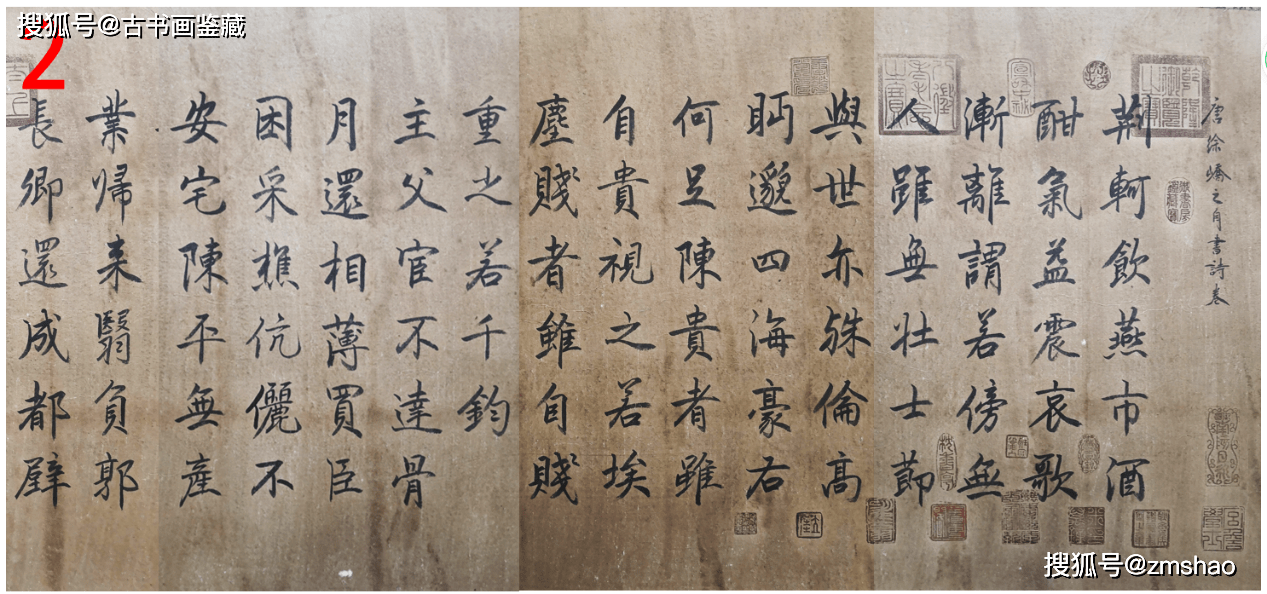 搜狐号@古书画鉴藏
2
唐徐嶠之自書詩卷
荊軻飲燕市酒
酣氣益震哀歌
漸離謂若傍無
人雖無壯士節
與世亦殊倫高
眄邈四海豪右
何足陳貴者雖
自貴視之若埃
塵賤者雖自賤
重之若千鈞
主父宦不達骨
月還相薄買臣
困采樵伉儷不
安宅陳平無產
業歸來翳負郭
長卿還成都壁
搜狐号@zmshao